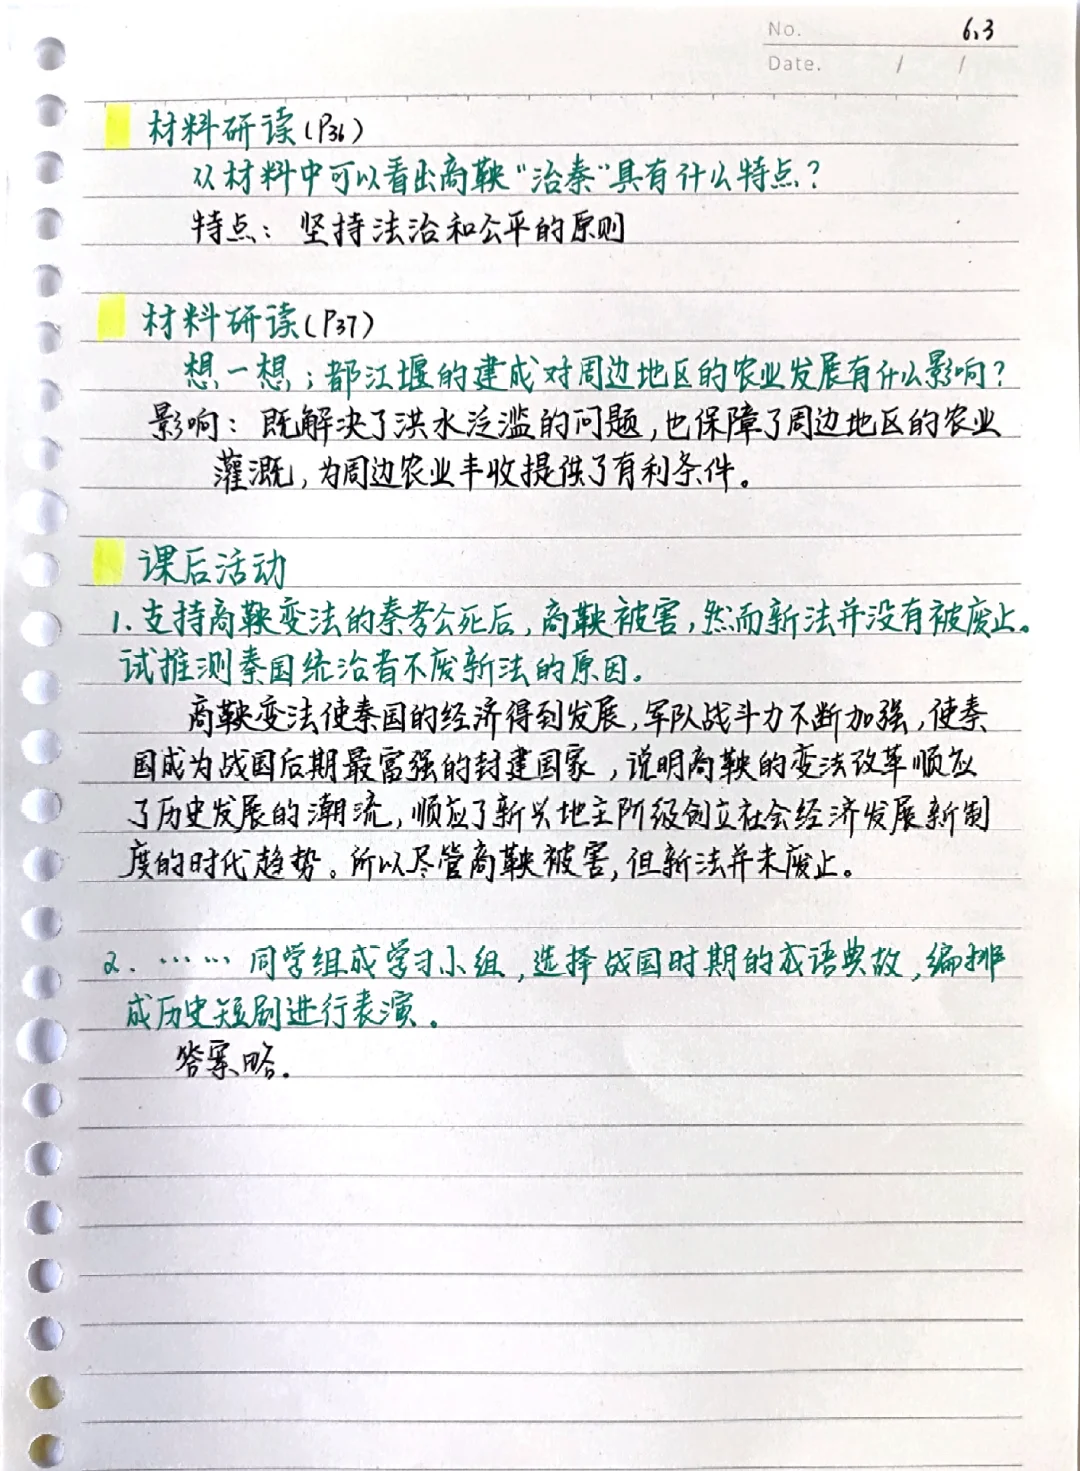 No. 6.3
Date. / /
材料研读(P36)
从材料中可以看出商鞅"治秦"具有什么特点?
特点：坚持法治和公平的原则
材料研读(P37)
想一想；都江堰的建成对周边地区的农业发展有什么影响?
影响：既解决了洪水泛滥的问题,也保障了周边地区的农业
灌溉,为周边农业丰收提供了有利条件。
课后活动
1.支持商鞅变法的秦孝公死后,商鞅被害,然而新法并没有被废止。
试推测秦国统治者不废新法的原因。
商鞅变法使秦国的经济得到发展,军队战斗力不断加强,使秦
国成为战国后期最富强的封建国家,说明商鞅的变法改革顺应
了历史发展的潮流,顺应了新兴地主阶级创立社会经济发展新制
度的时代趋势。所以尽管商鞅被害,但新法并未废止。
2.……同学组成学习小组,选择战国时期的成语典故,编排
成历史短剧进行表演。
答案略.